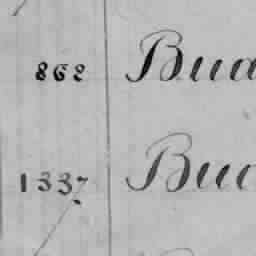 862 Bua
1337 Buc